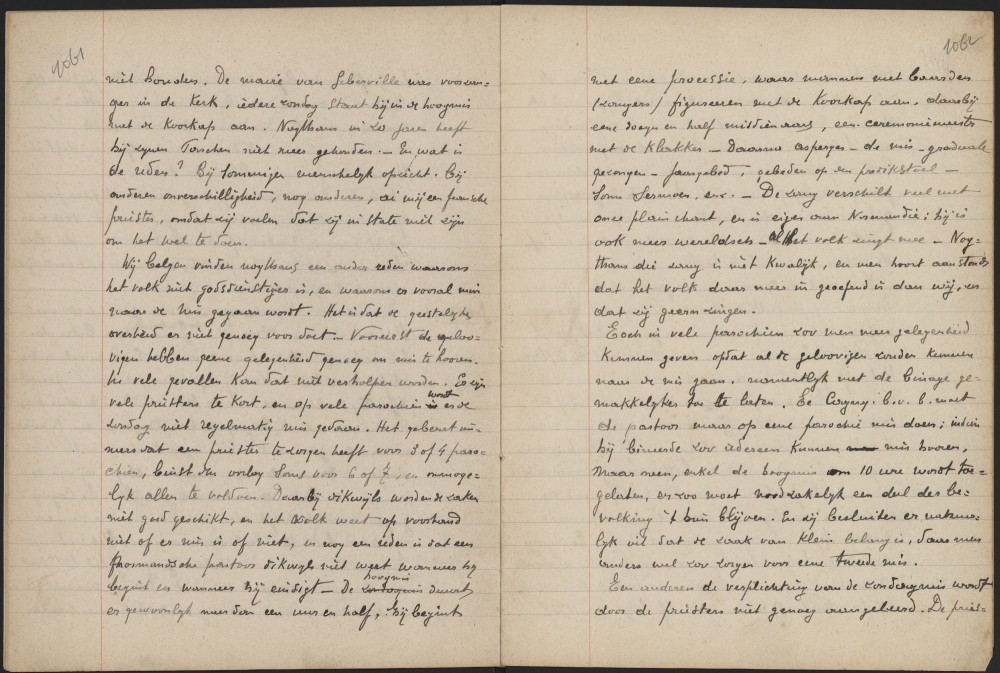 1061
niet houden. De maire van Giberville was voorzan-
ger in de Kerk, iedere zondag staat hij in de hoogmis
met de Koorkap aan. Nogthans in 20 jaren heeft
hij zijnen Paschen niet meer gehouden. — En wat is
de reden? Bij sommigen menschelijk opzicht. bij
anderen onverschilligheid, nog anderen, zei mij een fransche
priester, omdat zij voelen dat zij in state niet zijn
om het wel te doen.
Wij belgen vinden nogthans een ander reden waarom
het volk niet godsdienstiger is, en waarom er vooral min
naar de mis gegaan wordt. Het is dat de geestelijke
overheid er niet genoeg voor doet. — Vooreerst de geloo-
vigen hebben geene gelegenheid genoeg om mis te hooren.
In vele gevallen kan dat niet verholpen worden. Er zijn
vele priesters te kort, en op vele parochien wordt er de
zondag niet regelmatig mis gedaan. Het gebeurt im-
mers dat een priester te zorgen heeft voor 3 of 4 paro-
chien, binst den oorlog soms voor 6 of 7, en onmoge-
lyk allen te voldoen. Daarbij dikwijls worden de zaken
niet goed geschikt, en het volk weet op voorhand
niet of er mis is of niet, en nog een reden is dat een
Normandsche pastoor dikwijls niet weet wanneer hij
begint en wanneer hij eindigt — De hoogmis duurt
er gewoonlyk meer dan een uur en half, hij begint
1062
met eene processie, waar mannen met baarden
(zangers) figureeren met de Koorkap aan, daarbij
eene dozyn en half misdienaars, een ceremoniemeester
met de Klakker — Daarna asperges — de mis — graduale
gezongen — jaargebed, gebeden op den predikstoel —
Soms Sermoen, enz. — De zang verschilt veel met
onze plain chant, en is eigen aan Normandie; hij is
ook meer wereldsch — al het volk zingt mee — Nog-
thans die zang is niet Kwalijk, en men hoort aanstonds
dat het volk daar meer in geoefend is dan wij, en
dat zij geern zingen.
Toch in vele parochien zou men meer gelegenheid
Kunnen geven opdat al de geloovigen zouden kunnen
naar de mis gaan. namentlyk met de binage ge-
makkelyker toe te laten. Te Cagny, b.v. b. moet
de pastoor maar op eene parochie mis doen; indien
hij bineerde zou iedereen kunnen mis hooren,
maar neen, enkel de hoogmis om 10 ure wordt toe-
gelaten, en zoo moet noodzakelyk een deel der be-
volking 't huis blijven. En zij besluiten er natuur-
lyk uit dat de zaak van klein belang is, daar men
anders wel zou zorgen voor eene tweede mis.
Ten anderen de verplichting van de zondagmis wordt
door de priesters niet genoeg aangeleerd. De pries-